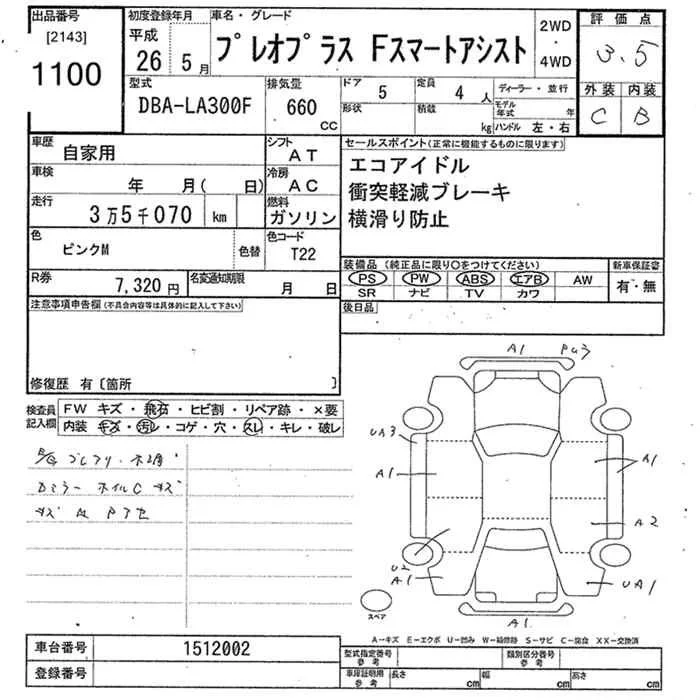 出品番号
[2143]
1100
初度登録年月
平成
26 5月
車名・グレード
プレオプラス Fスマートアシスト
2WD
・
4WD
評価点
3.5
外装 内装
C B
型式
DBA-LA300F
排気量
660
CC
ドア
5
形状
定員
4人
積載
kg
ディーラー・並行
モデル年式 年
ハンドル 左・右
車歴
自家用
シフト
AT
車検
年 月( 日)
冷房
AC
走行
3万5千070 km
燃料
ガソリン
色
ピンクM
色替
色コード
T22
R券
7,320円
名変通知期限
月 日
セールスポイント(正常に機能するものに限ります)
エコアイドル
衝突軽減ブレーキ
横滑り防止
装備品(純正品に限り○をつけてください)
PS PW ABS エアB AW
SR ナビ TV カワ
新車保証書
有・無
後日品
注意事項申告欄(不具合内容等は具体的に記入して下さい)
修復歴 有〔箇所 〕
検査員
記入欄
FW キズ・飛石・ヒビ割・リペア跡・×要
内装 キズ・汚レ・コゲ・穴・スレ・キレ・破レ
Dミラー ホイルC キズ
A1
UA3
A1
A1
A2
U2
A1
UA1
A1
スペア
A-キズ E-エクボ U-凹み W-補修跡 S-サビ C-腐食 XX-交換済
車台番号
1512002
登録番号
型式指定番号
参考
類別区分番号
参考
車庫証明用
参考
長さ cm 幅 cm 高さ cm